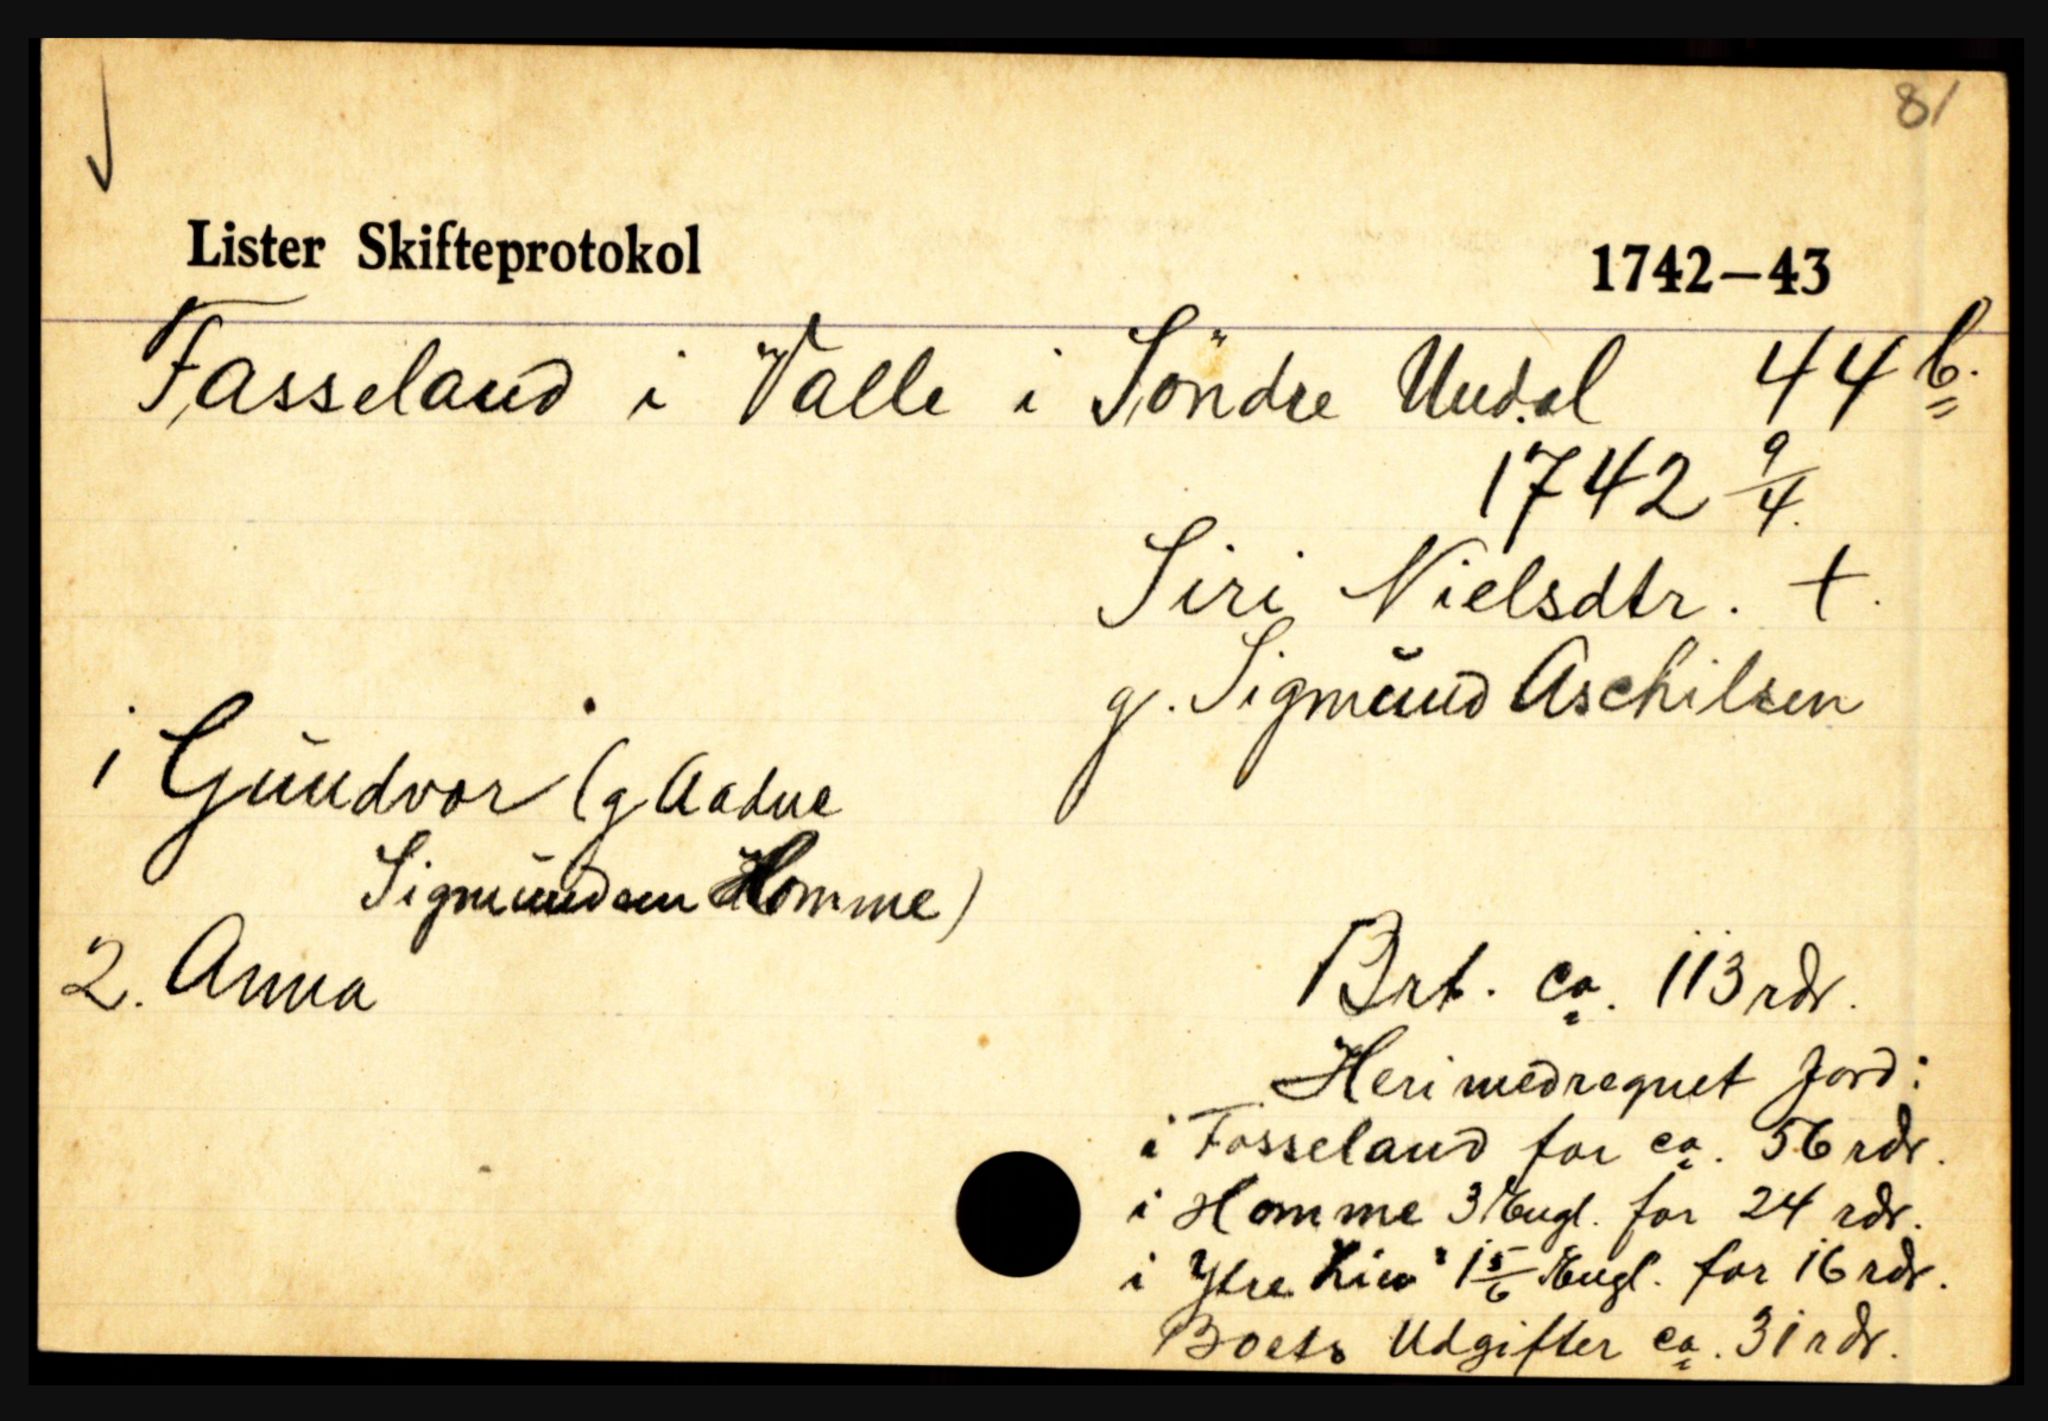 81
Lister Skifteprotokol 1742–43
Fasseland i Valle i Söndre Undal 44 b.
1742 9/4.
Siri Nielsdtr. +.
g. Sigmŭnd Aschilsen
1 Gŭndvor (g Aadne
Sigmŭndsen Homme)
2. Anna
Brt. ca. 113 rdr.
Heri medregnet Jord:
i Fasseland for ca. 56 rdr.
i Homme 3 Engl. for 24 rdr.
i Ytre 1 5/6 Engl. for 16 rdr.
Boets Udgifter ca. 31 rdr.